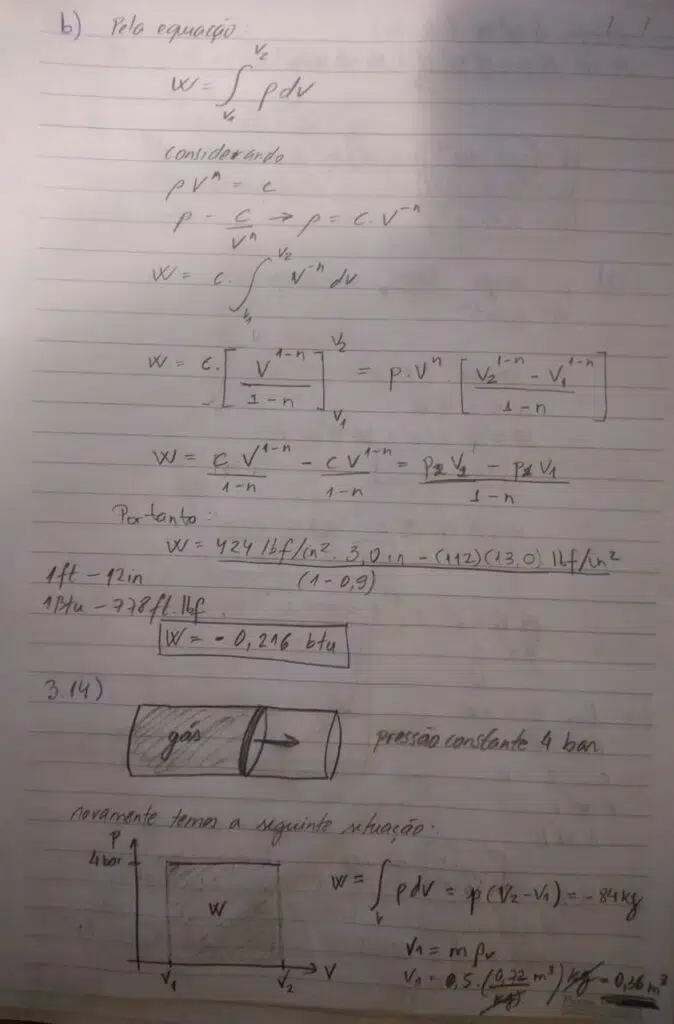 b) Pela equação:
W = ∫_{V1}^{V2} p dv
considerando
p V^n = c
p = c/V^n → p = c . V^-n
W = c . ∫_{V1}^{V2} V^-n dv
W = c . [V^{1-n}/(1-n)]_{V1}^{V2} = p . V^n . [(V2^{1-n} - V1^{1-n})/(1-n)]
W = c V^{1-n}/(1-n) - c V^{1-n}/(1-n) = (p2 V2 - p1 V1)/(1-n)
Portanto:
W = (424 lbf/in² . 3,0 in - (112)(13,0) lbf/in²)/(1-0,9)
1ft - 12in
1Btu - 778ft.lbf
W = - 0,216 btu
3.14)
gás
pressão constante 4 bar
novamente temos a seguinte situação:
P
4 bar
W
V1 V2 V
W = ∫_V p dv = p(V2 - V1) = -84 kg
V1 = m ρv
V1 = 0,5 . (0,72 m³/kg) kg = 0,36 m³